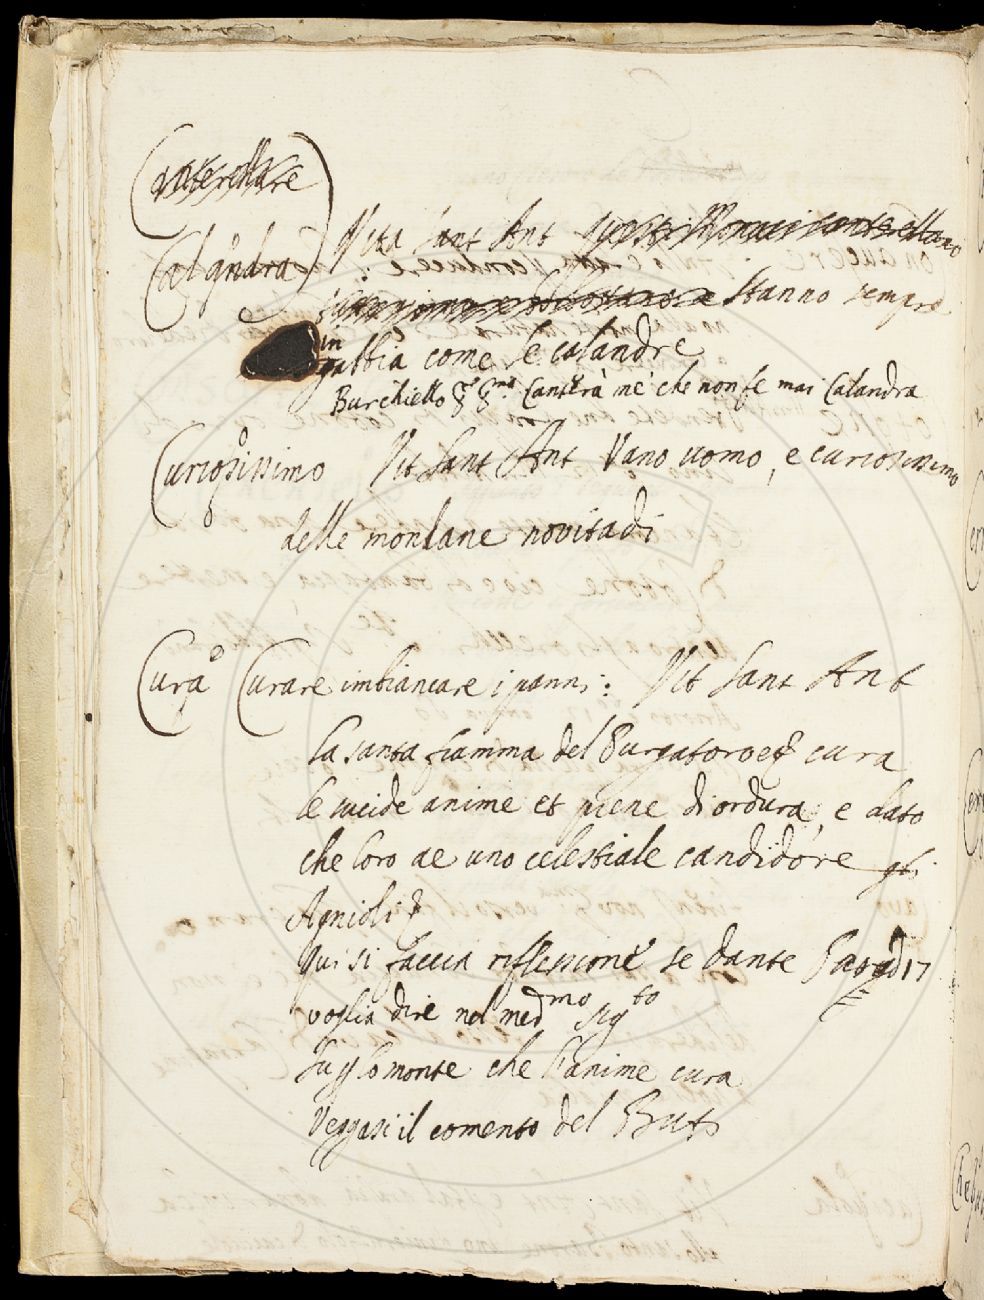 Calandra Vita Sant Ant
Stanno sempre
in gabbia come le calandre
Burchiello Canterà me' che non fe mai Calandra
Curiosissimo Vit Sant Ant Vano uomo, e curiosissimo
delle mondane novitadi
Cura Curare imbiancare i panni: Vit Sant Ant
La santa fiamma del Purgatoro cura
le sucide anime et piene di ordura, e dato
che loro ae uno celestiale candidore gli
Agnioli
Qui si faccia riflessione se Dante Parad 17
voglia dire nel med.mo sig.to
Su p lo monte che l'anime cura
Veggasi il comento del But